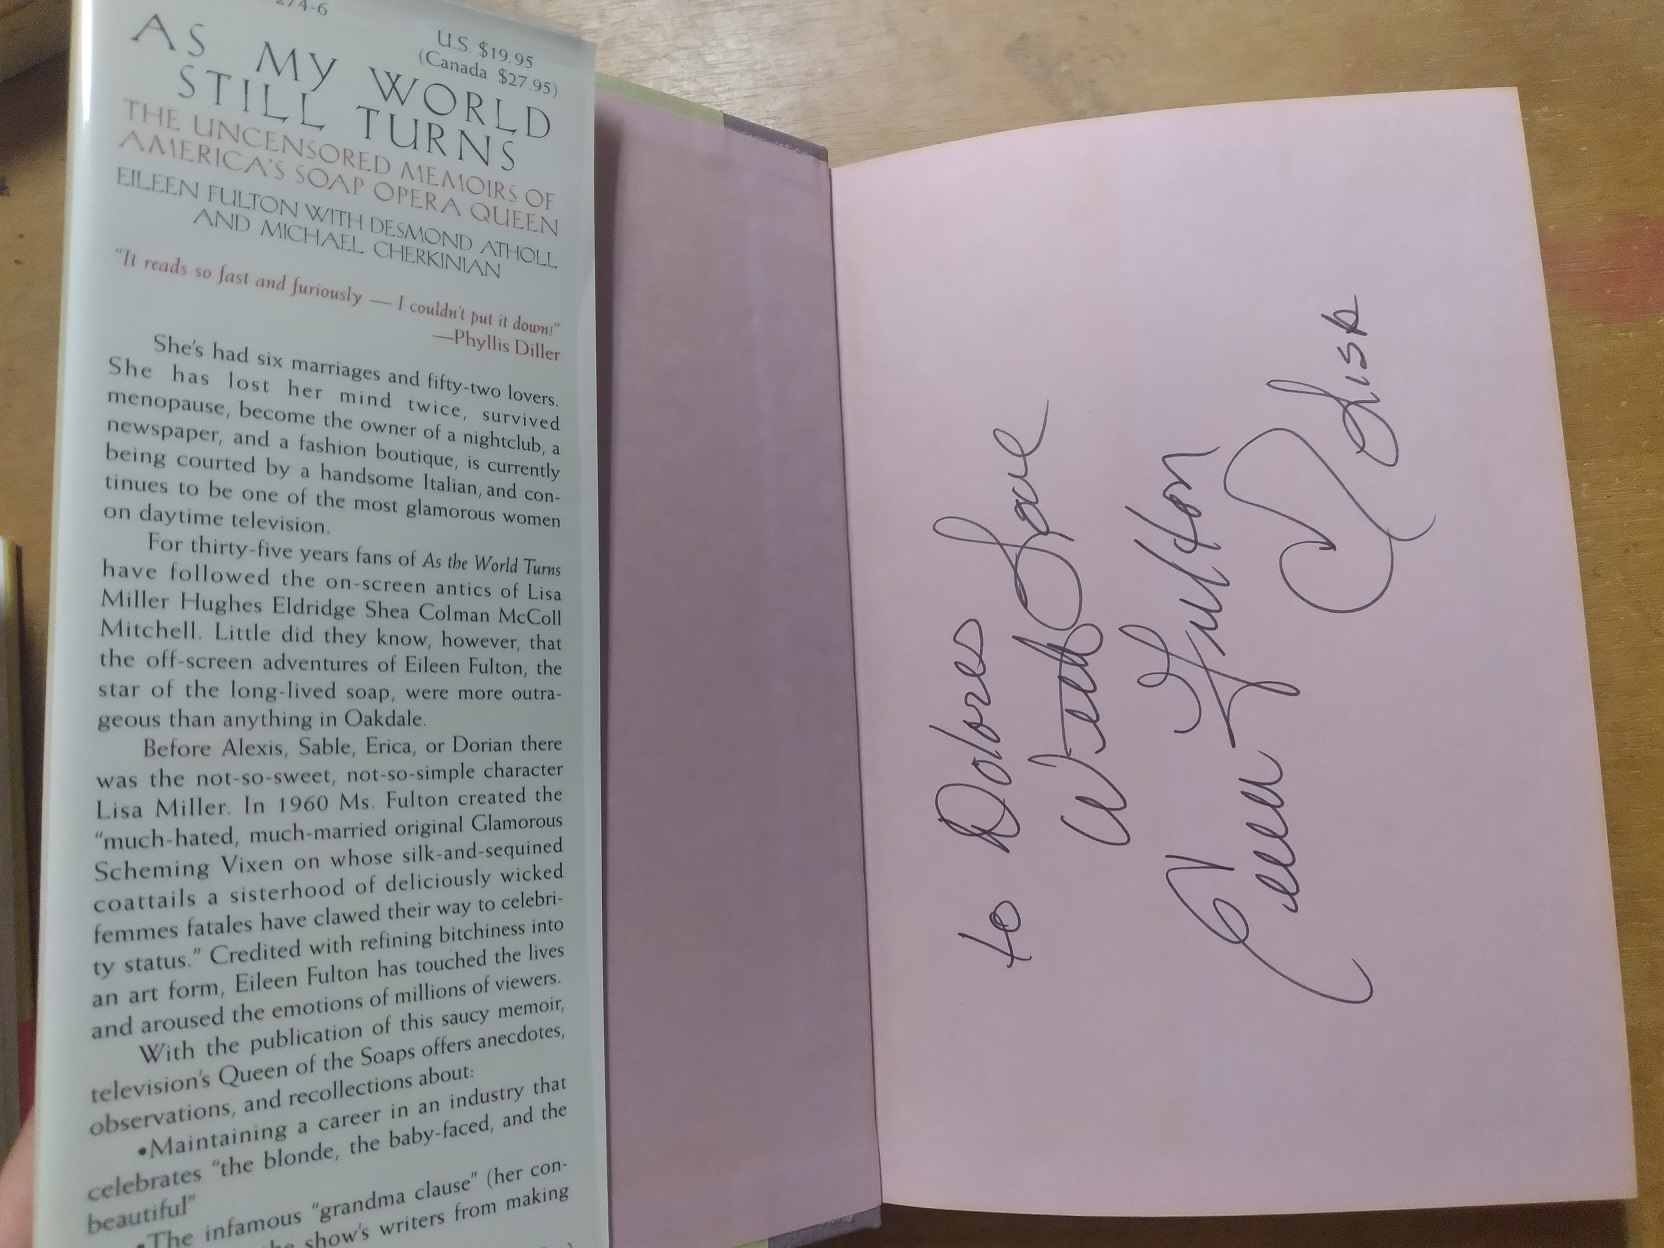 274-6
U.S. $19.95
(Canada $27.95)
AS MY WORLD
STILL TURNS
THE UNCENSORED MEMOIRS OF
AMERICA'S SOAP OPERA QUEEN
EILEEN FULTON WITH DESMOND ATHOLL
AND MICHAEL CHERKINIAN
"It reads so fast and furiously — I couldn't put it down!"
—Phyllis Diller
She's had six marriages and fifty-two lovers.
She has lost her mind twice, survived
menopause, become the owner of a nightclub, a
newspaper, and a fashion boutique, is currently
being courted by a handsome Italian, and con-
tinues to be one of the most glamorous women
on daytime television.
For thirty-five years fans of As the World Turns
have followed the on-screen antics of Lisa
Miller Hughes Eldridge Shea Colman McColl
Mitchell. Little did they know, however, that
the off-screen adventures of Eileen Fulton, the
star of the long-lived soap, were more outra-
geous than anything in Oakdale.
Before Alexis, Sable, Erica, or Dorian there
was the not-so-sweet, not-so-simple character
Lisa Miller. In 1960 Ms. Fulton created the
"much-hated, much-married original Glamorous
Scheming Vixen on whose silk-and-sequined
coattails a sisterhood of deliciously wicked
femmes fatales have clawed their way to celebri-
ty status." Credited with refining bitchiness into
an art form, Eileen Fulton has touched the lives
and aroused the emotions of millions of viewers.
With the publication of this saucy memoir,
television's Queen of the Soaps offers anecdotes,
observations, and recollections about:
•Maintaining a career in an industry that
celebrates "the blonde, the baby-faced, and the
beautiful"
•The infamous "grandma clause" (her con-
show's writers from making
to Dolores
With Love
Eileen Fulton
Lisa